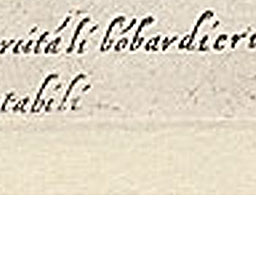 rutáli bóbardieri
tabili